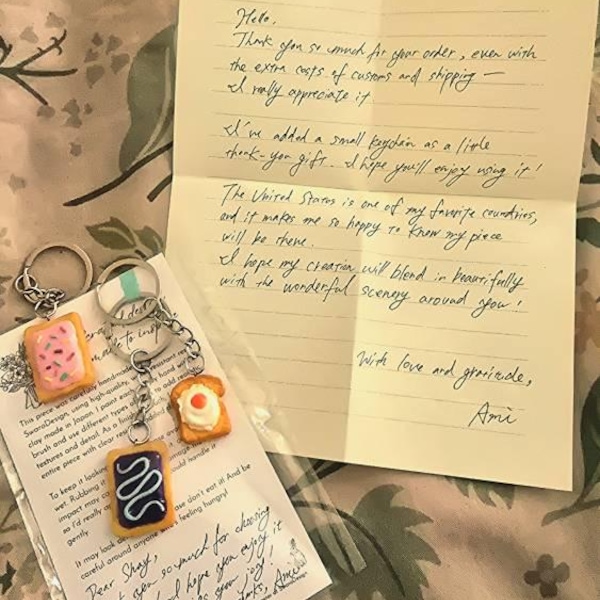 Hello,
Thank you so much for your order, even with
the extra costs of customs and shipping —
I really appreciate it
I've added a small keychain as a little
thank-you gift. I hope you'll enjoy using it!
The United States is one of my favorite countries,
and it makes me so happy to know my piece
will be there.
I hope my creation will blend in beautifully
with the wonderful scenery around you!
With love and gratitude,
Ami
made to
This piece was carefully handmade
SwaroDesign, using high-quality, resistant resin
clay made in Japan. I paint each
brush and use different types
textures and detail. As a finish
entire piece with clear
To keep it looking
wet. Rubbing it
impact may
so I'd really handle it
gently
It may look don't eat it! And be
careful around anyone feeling hungry!
Dear Shay,
you so much for choosing
hope you enjoy it
you joy!
Ami